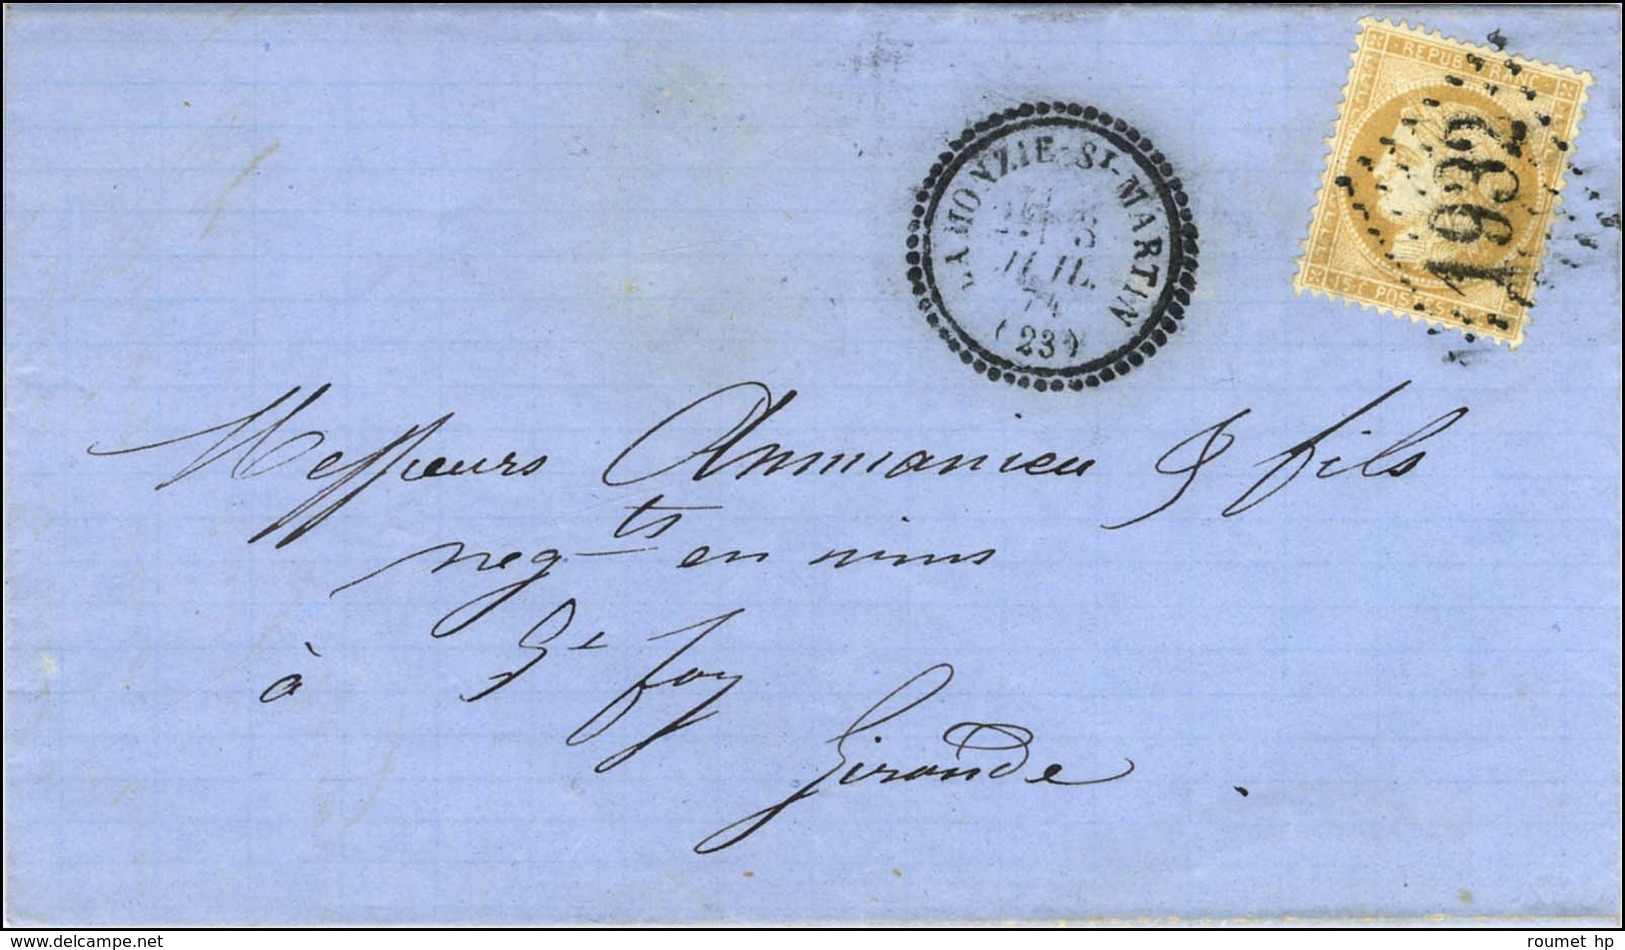 REPUB. FRANC.
1932
15 C. POSTES 15 C.
LAMONZIE-ST-MARTIN
JUIL.
74
(23)
Messieurs Ammanieu & fils
neg.ts en vins
à St foy
Gironde.
www.delcampe.net
roumet hp